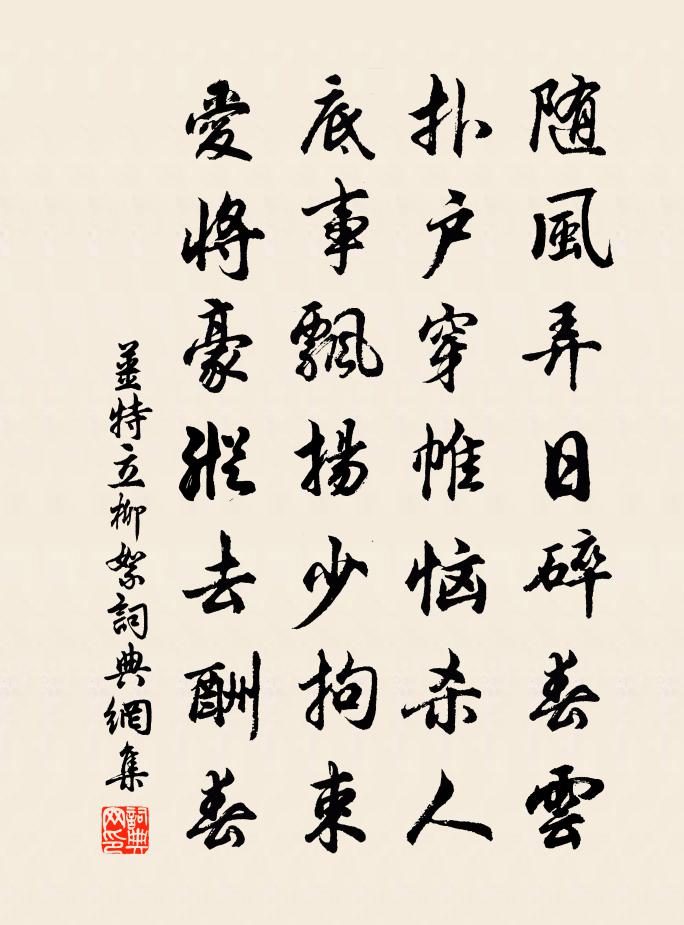 随風弄日碎春雲
扑户穿帷恼杀人
底事飄揚少拘束
愛將豪縱去酬春
姜特立柳絮詞典網集
詞典網印